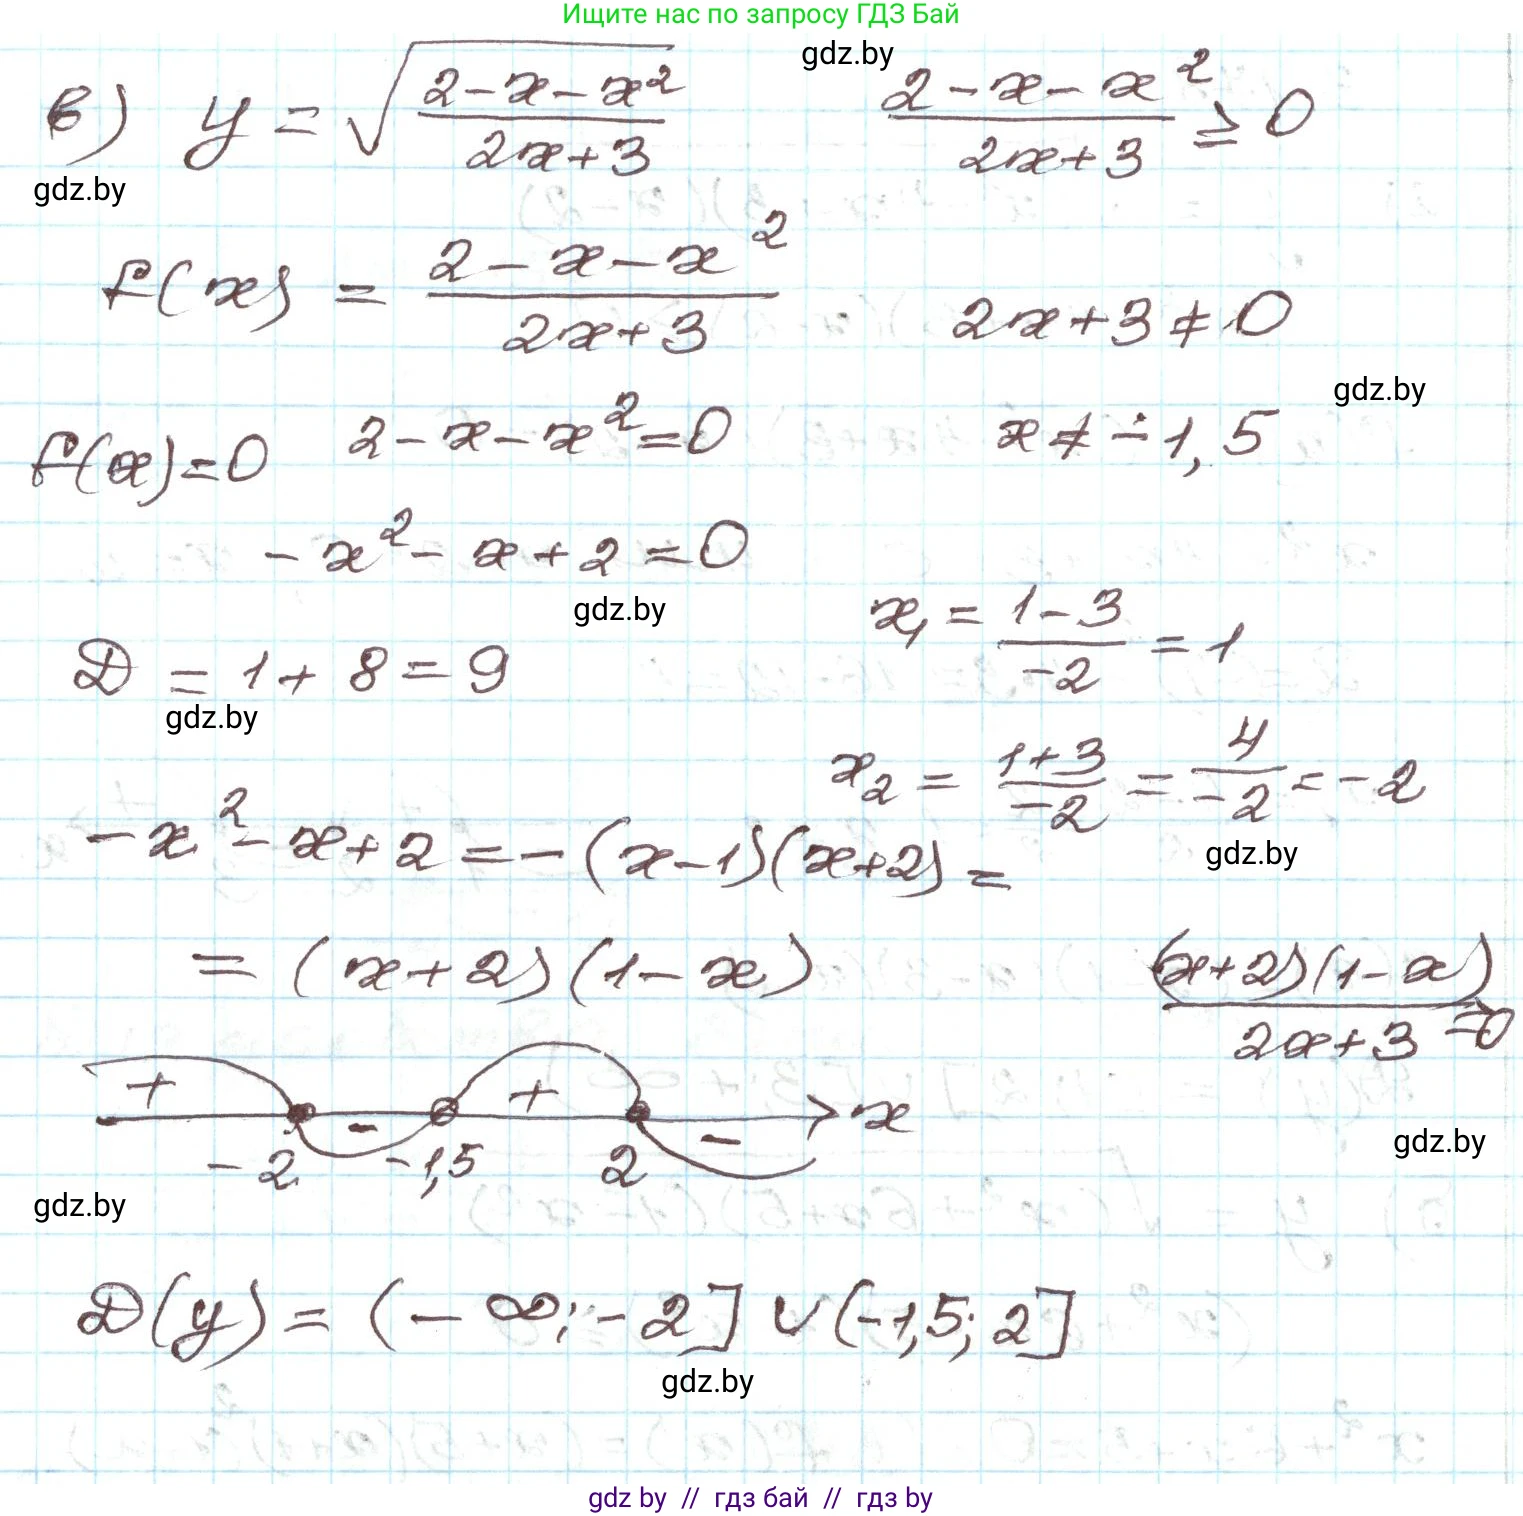 Ищите нас по запросу ГДЗ Бай
gdz.by
в) y = √((2-x-x²)/(2x+3))   (2-x-x²)/(2x+3) ≥ 0
gdz.by
f(x) = (2-x-x²)/(2x+3)   2x+3≠0
gdz.by
f(x)=0   2-x-x²=0   x≠-1,5
-x²-x+2=0
gdz.by
x₁ = (1-3)/(-2) = 1
D = 1+8=9
gdz.by
x₂ = (1+3)/(-2) = 4/(-2) = -2
-x²-x+2=-(x-1)(x+2)=
gdz.by
=(x+2)(1-x)   (x+2)(1-x)/(2x+3) ≥0
+ - + - x
-2 -1,5 2
gdz.by
gdz.by
D(y)=(-∞;-2]∪(-1,5;2]
gdz.by
gdz by // гдз бай // гдз by